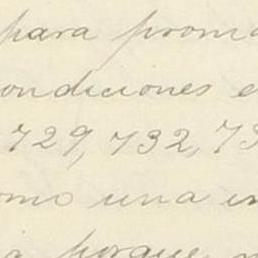 para prom
ondiciones e
729, 732, 73
omo una in
a porque